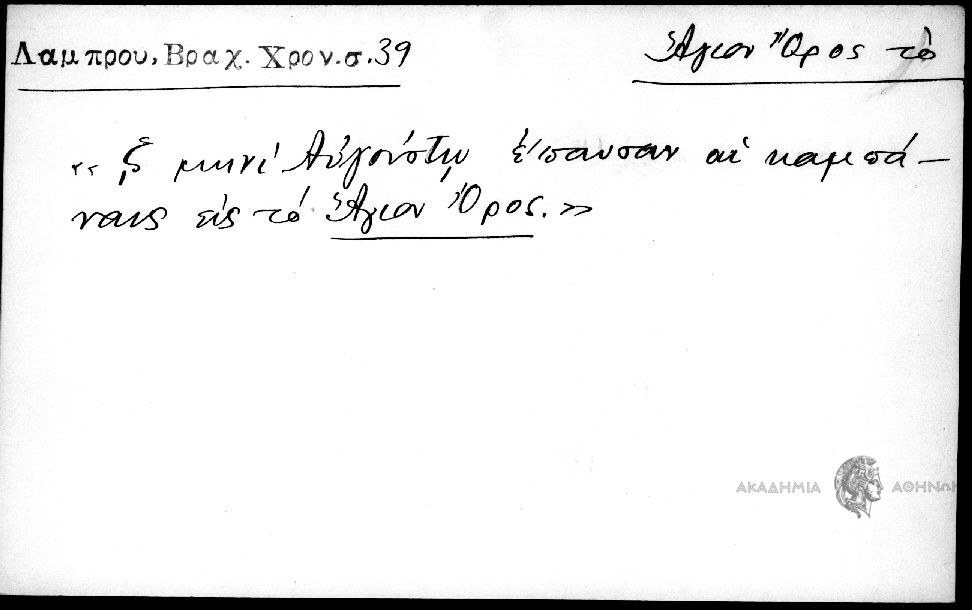 Λαμπρου, Βραχ. Χρον. σ. 39
Ἅγιον Ὄρος τὸ
«ξ μηνὶ Αὐγούστῳ ἔπαυσαν αἱ καμπά–
ναις εἰς τὸ Ἅγιον Ὄρος.»
ΑΚΑΔΗΜΙΑ ΑΘΗΝΩΝ